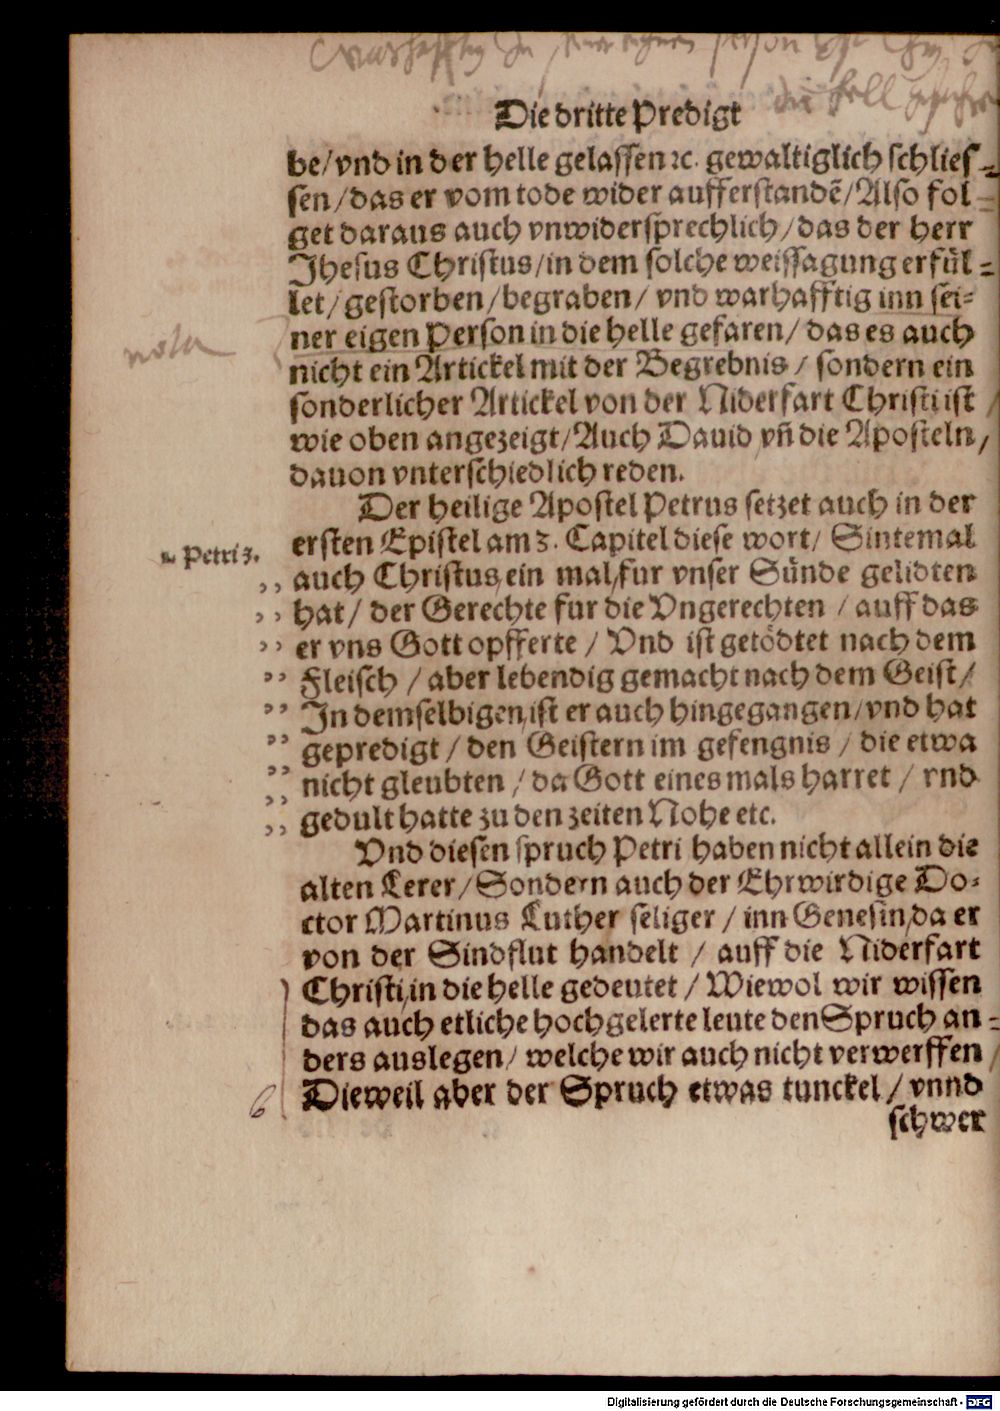 Warhafftig In seiner eignen person
die hell
Die dritte Predigt
be/vnd in der helle gelassen ꝛc. gewaltiglich schlies-
sen/das er vom tode wider aufferstandẽ/Also fol-
get daraus auch vnwidersprechlich/das der herr
Jhesus Christus/in dem solche weissagung erfül-
let/gestorben/begraben/ vnd warhafftig inn sei-
ner eigen Person in die helle gefaren/ das es auch
nota
nicht ein Artickel mit der Begrebnis/ sondern ein
sonderlicher Artickel von der Niderfart Christi ist /
wie oben angezeigt/Auch Dauid vñ die Aposteln,/
dauon vnterschiedlich reden.
Der heilige Apostel Petrus setzet auch in der
ersten Epistel am 3. Capitel diese wort/ Sintemal
1. Petri 3.
,, auch Christus,ein mal/fur vnser Sünde gelidten
,, hat/ der Gerechte fur die Vngerechten / auff das
,, er vns Gott opfferte / Vnd ist getödtet nach dem
,, Fleisch / aber lebendig gemacht nach dem Geist/
,, In demselbigen,ist er auch hingegangen/vnd hat
,, gepredigt / den Geistern im gefengnis / die etwa
,, nicht gleubten / da Gott eines mals harret / vnd
,, gedult hatte zu den zeiten Nohe etc.
Vnd diesen spruch Petri haben nicht allein die
alten Lerer/Sondern auch der Ehrwirdige Do-
ctor Martinus Luther seliger / inn Genesin/da er
von der Sindflut handelt / auff die Niderfart
Christi,in die helle gedeutet / Wiewol wir wissen
das auch etliche hochgelerte leute den Spruch an-
ders auslegen/ welche wir auch nicht verwerffen /
Dieweil aber der Spruch etwas tunckel / vnnd
schwer
Digitalisierung gefördert durch die Deutsche Forschungsgemeinschaft - DFG